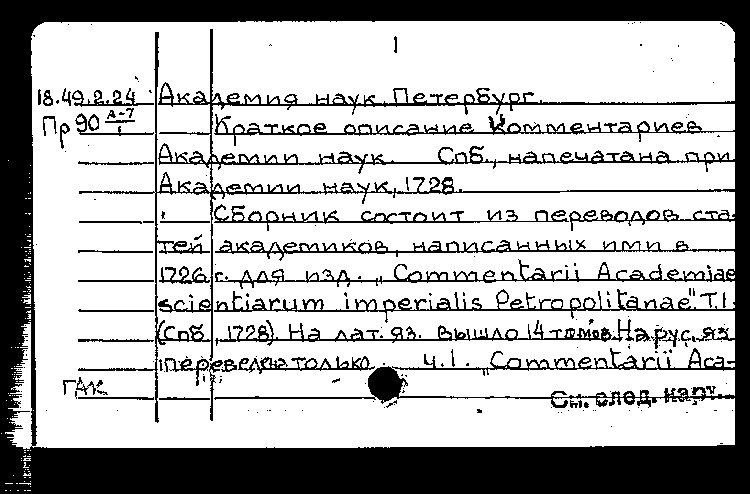 1
18.49.2.24 Академия наук. Петербург.
Пр 90 А-7/1 Краткое описание Комментариев
Академии наук. Спб., напечатана при
Академии наук, 1728.
Сборник состоит из переводов ста-
тей академиков, написанных ими в
1726 г. для изд. „Commentarii Academiae
scientiarum imperialis Petropolitanae". T.I.
(Спб., 1728). На лат. яз. вышло 14 томов. На рус. яз
переведена только ч.1. „Commentarii Aca-
ГАК
См. след. карт.